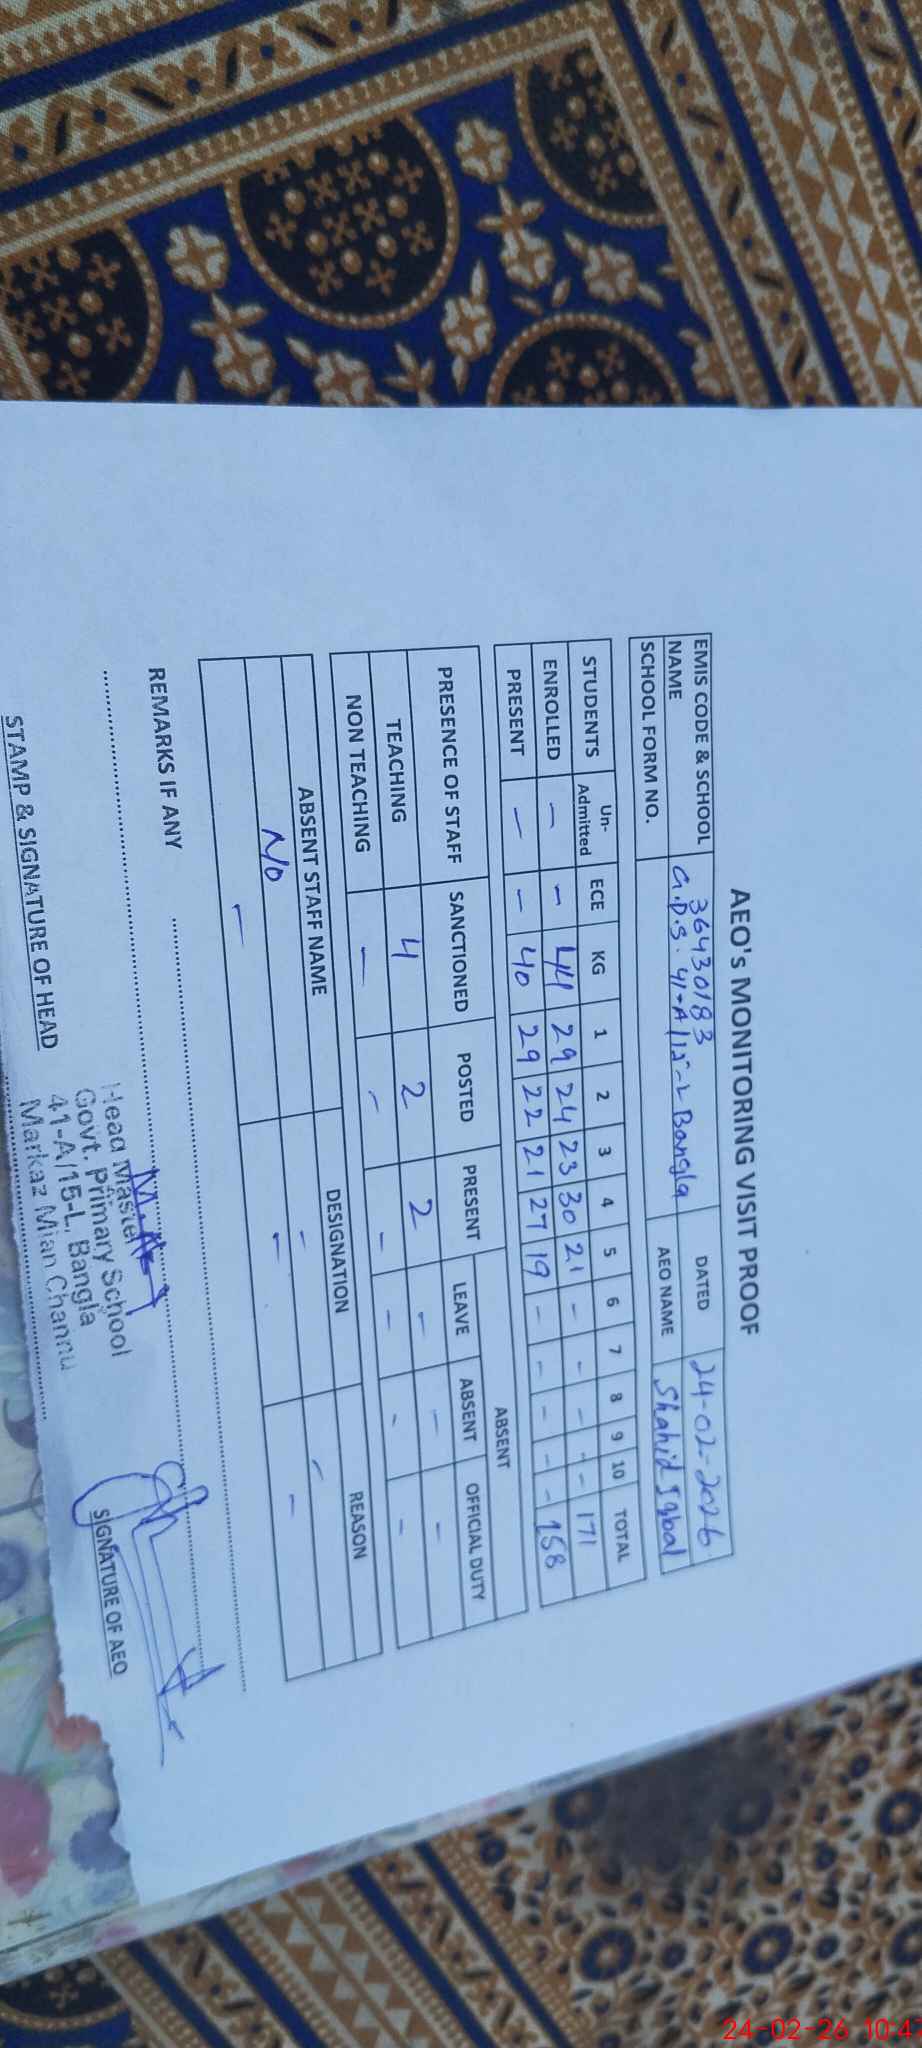 AEO's MONITORING VISIT PROOF
EMIS CODE & SCHOOL NAME 36430183 G.P.S. 41-A/15-L Bangla DATED 24-02-2026
SCHOOL FORM NO. AEO NAME Shahid Iqbal
STUDENTS Un-Admitted ECE KG 1 2 3 4 5 6 7 8 9 10 TOTAL
ENROLLED - - 44 29 24 23 30 21 - - - - - 171
PRESENT - - 40 29 22 21 27 19 - - - - - 158
PRESENCE OF STAFF SANCTIONED POSTED PRESENT ABSENT
LEAVE ABSENT OFFICIAL DUTY
TEACHING 4 2 2 - - -
NON TEACHING - - - - - -
ABSENT STAFF NAME DESIGNATION REASON
N/o - -
- - -
REMARKS IF ANY
Head Master
Govt. Primary School
41-A/15-L Bangla
Markaz Mian Channu
STAMP & SIGNATURE OF HEAD
SIGNATURE OF AEO
24-02-26 10:47